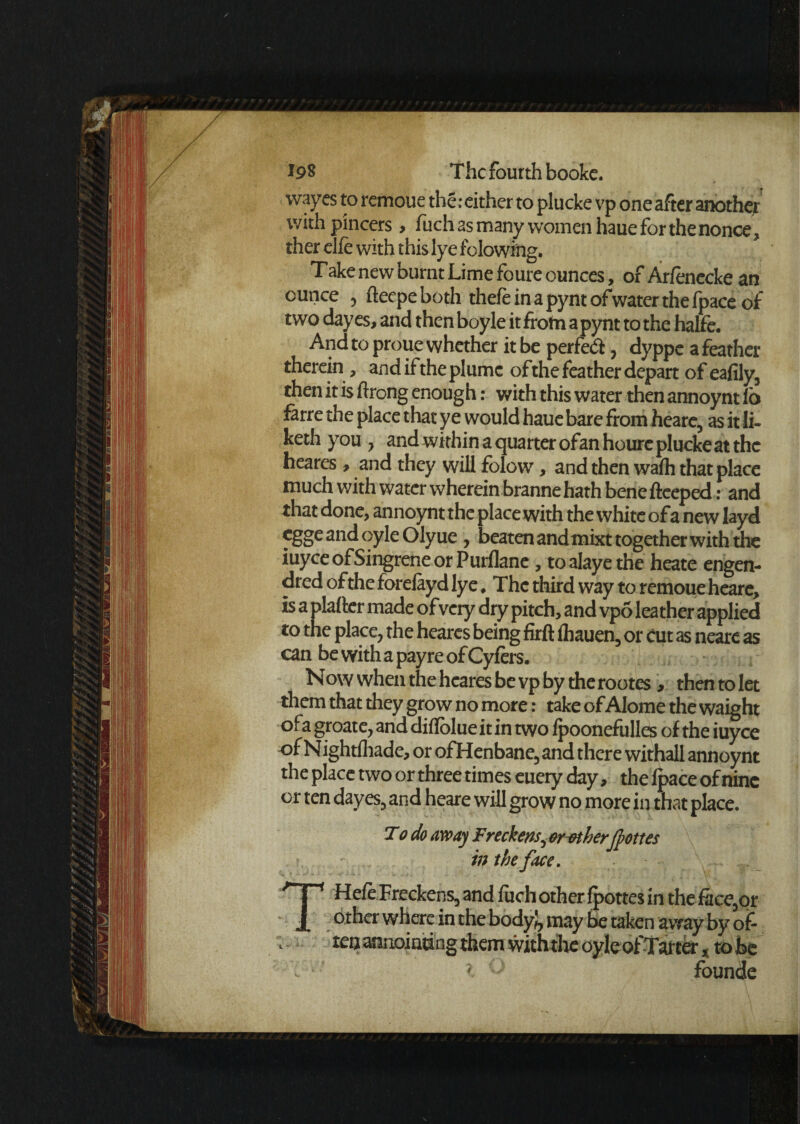 198 The fourth booke.
wayes to remoue thē: either to plucke vp one after another
with pincers, ſuch as many women haue for the nonce,
ther elſe with this lye folowing.
Take new burnt Lime foure ounces, of Arſenecke an
ounce, ſteepe both theſe in a pynt of water the ſpace of
two dayes, and then boyle it from a pynt to the halfe.
And to proue whether it be perfect, dyppe a feather
therein, and if the plume of the feather depart of eaſily,
then it is ſtrong enough: with this water then annoynt ſo
farre the place that ye would haue bare from heare, as it li-
keth you, and within a quarter of an houre plucke at the
heares, and they will folow, and then waſh that place
much with water wherein branne hath bene ſteeped: and
that done, annoynt the place with the white of a new layd
egge and oyle Olyue, beaten and mixt together with the
iuyce of Singrene or Purſlane, to alaye the heate engen-
dred of the foreſayd lye. The third way to remoue heare,
is a plaſter made of very dry pitch, and vpō leather applied
to the place, the heares being firſt ſhauen, or cut as neare as
can be with a payre of Cyſers.
Now when the heares be vp by the rootes, then to let
them that they grow no more: take of Alome the waight
of a groate, and diſſolue it in two ſpoonefulles of the iuyce
of Nightſhade, or of Henbane, and there withall annoynt
the place two or three times euery day, the ſpace of nine
or ten dayes, and heare will grow no more in that place.
To do away Freckens, or other ſpottes
in the face.
THeſe Freckens, and ſuch other ſpottes in the face, or
other where in the body, may be taken away by of-
ten annointing them with the oyle of Tarter, to be
founde